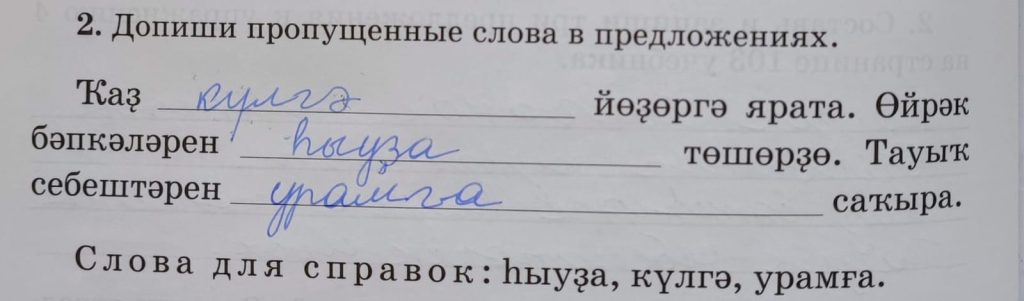 2. Допиши пропущенные слова в предложениях.
Ҡаҙ күлгә йөҙөргә ярата. Өйрәк
бәпкәләрен һыуҙа төшөрҙө. Тауыҡ
себештәрен урамға саҡыра.
Слова для справок: һыуҙа, күлгә, урамға.